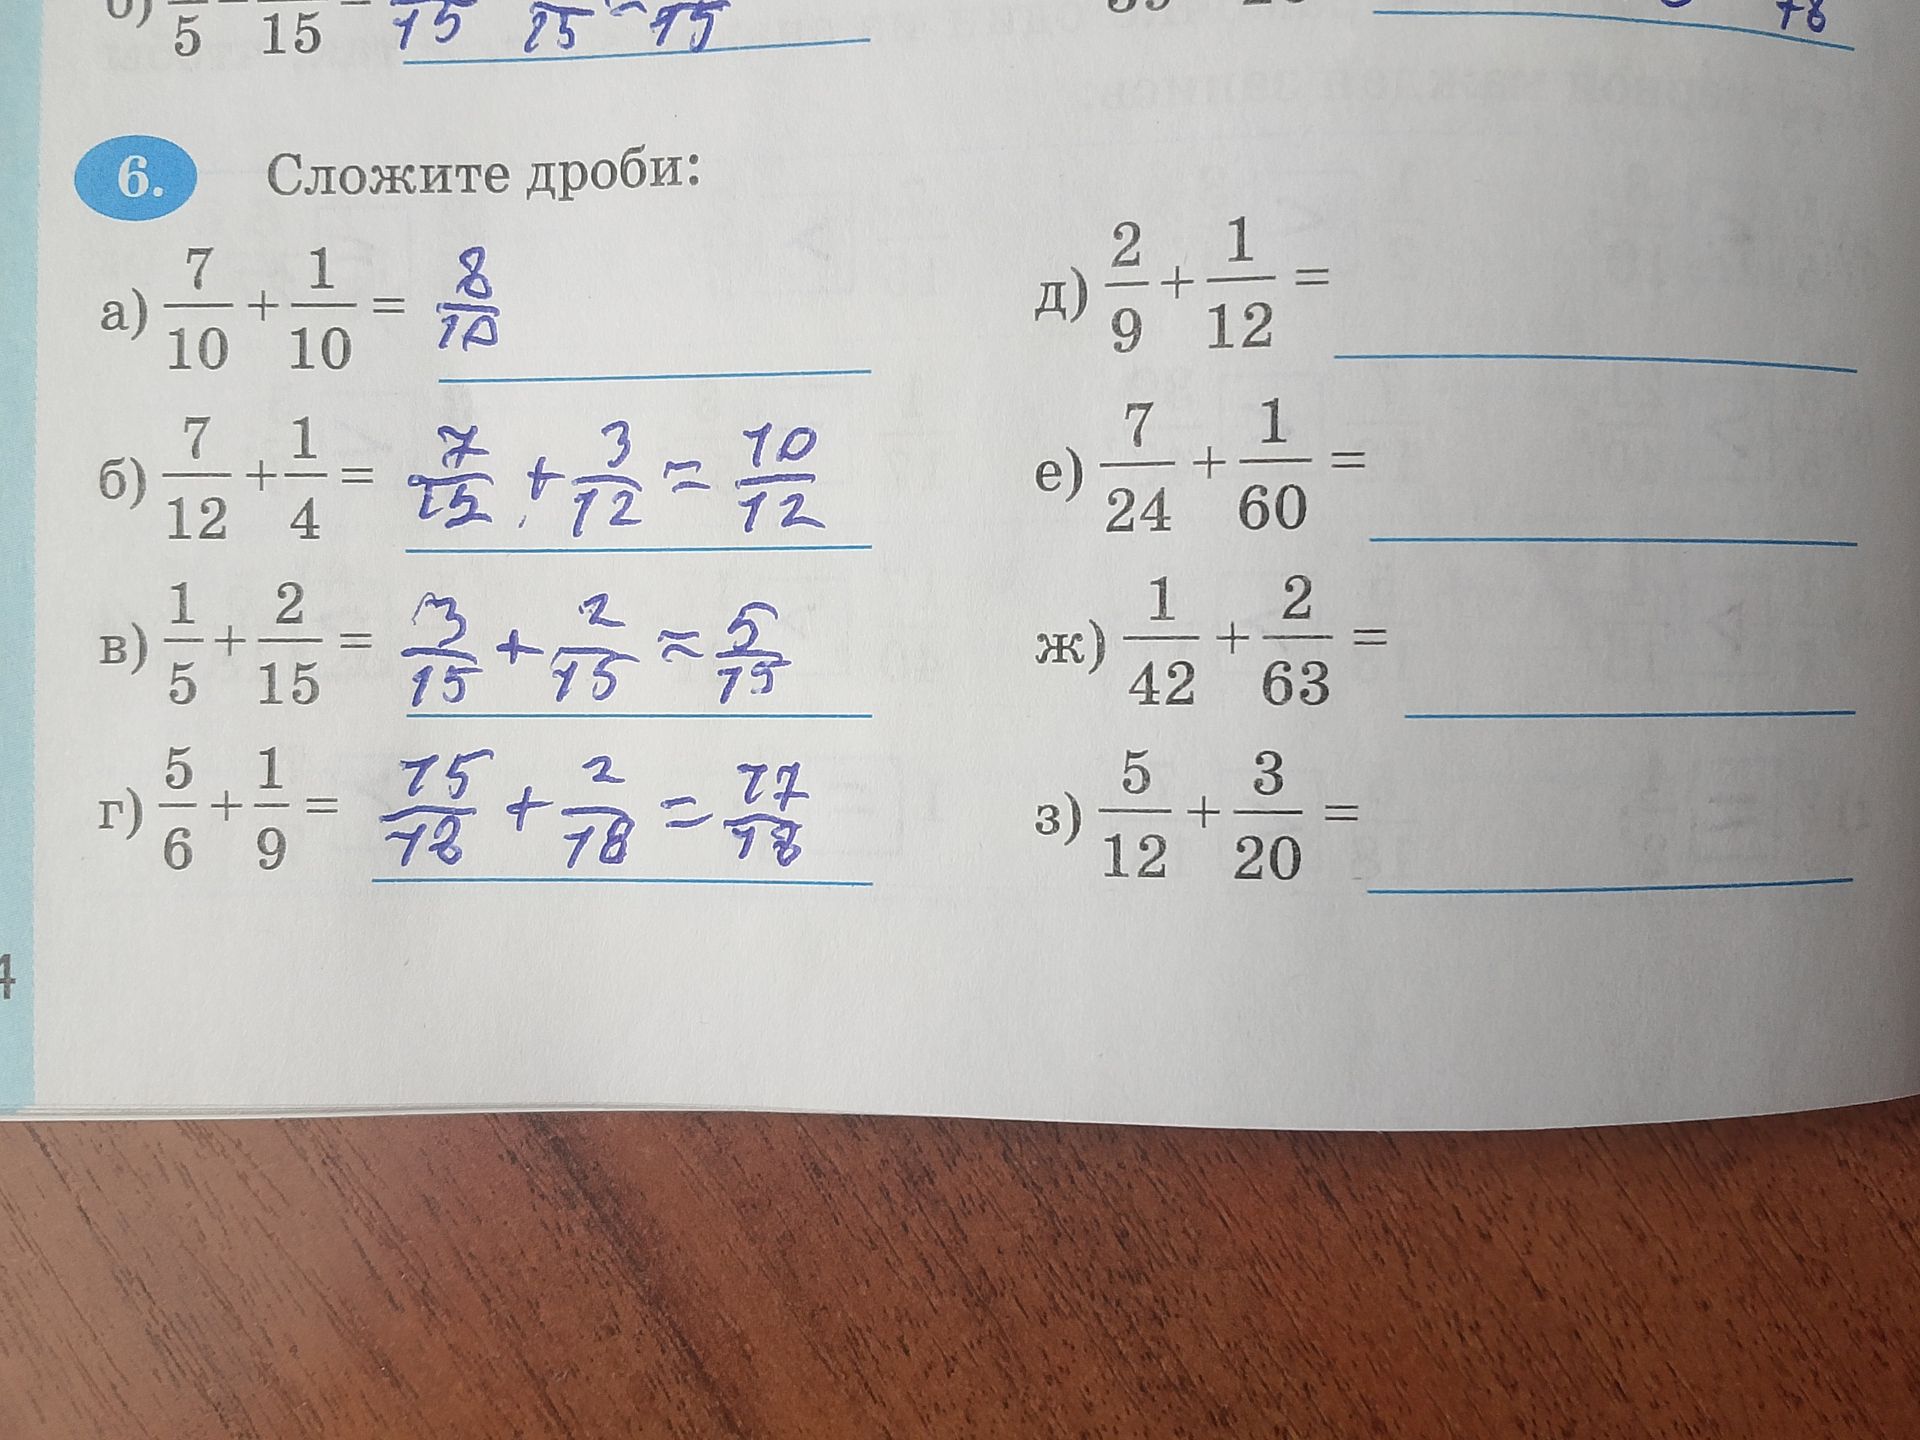 5 15 15 15 = 15
78
6. Сложите дроби:
а) 7/10 + 1/10 = 8/10
б) 7/12 + 1/4 = 7/12 + 3/12 = 10/12
в) 1/5 + 2/15 = 3/15 + 2/15 = 5/15
г) 5/6 + 1/9 = 15/18 + 2/18 = 17/18
д) 2/9 + 1/12 =
е) 7/24 + 1/60 =
ж) 1/42 + 2/63 =
з) 5/12 + 3/20 =
4